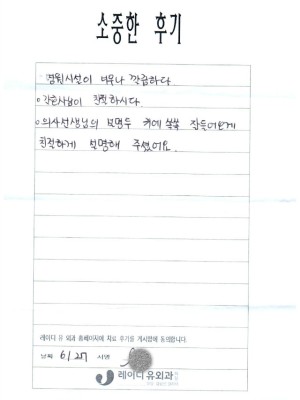 소중한 후기
병원시설이 너무나 깔끔하다
간호사님이 친절하시다.
의사선생님의 설명두 귀에 쏙쏙 잘들어오게
친절하게 설명해 주셨어요.
레이디 유 외과 홈페이지에 치료 후기를 게시함에 동의합니다.
날짜 6/27 서명
레이디유외과